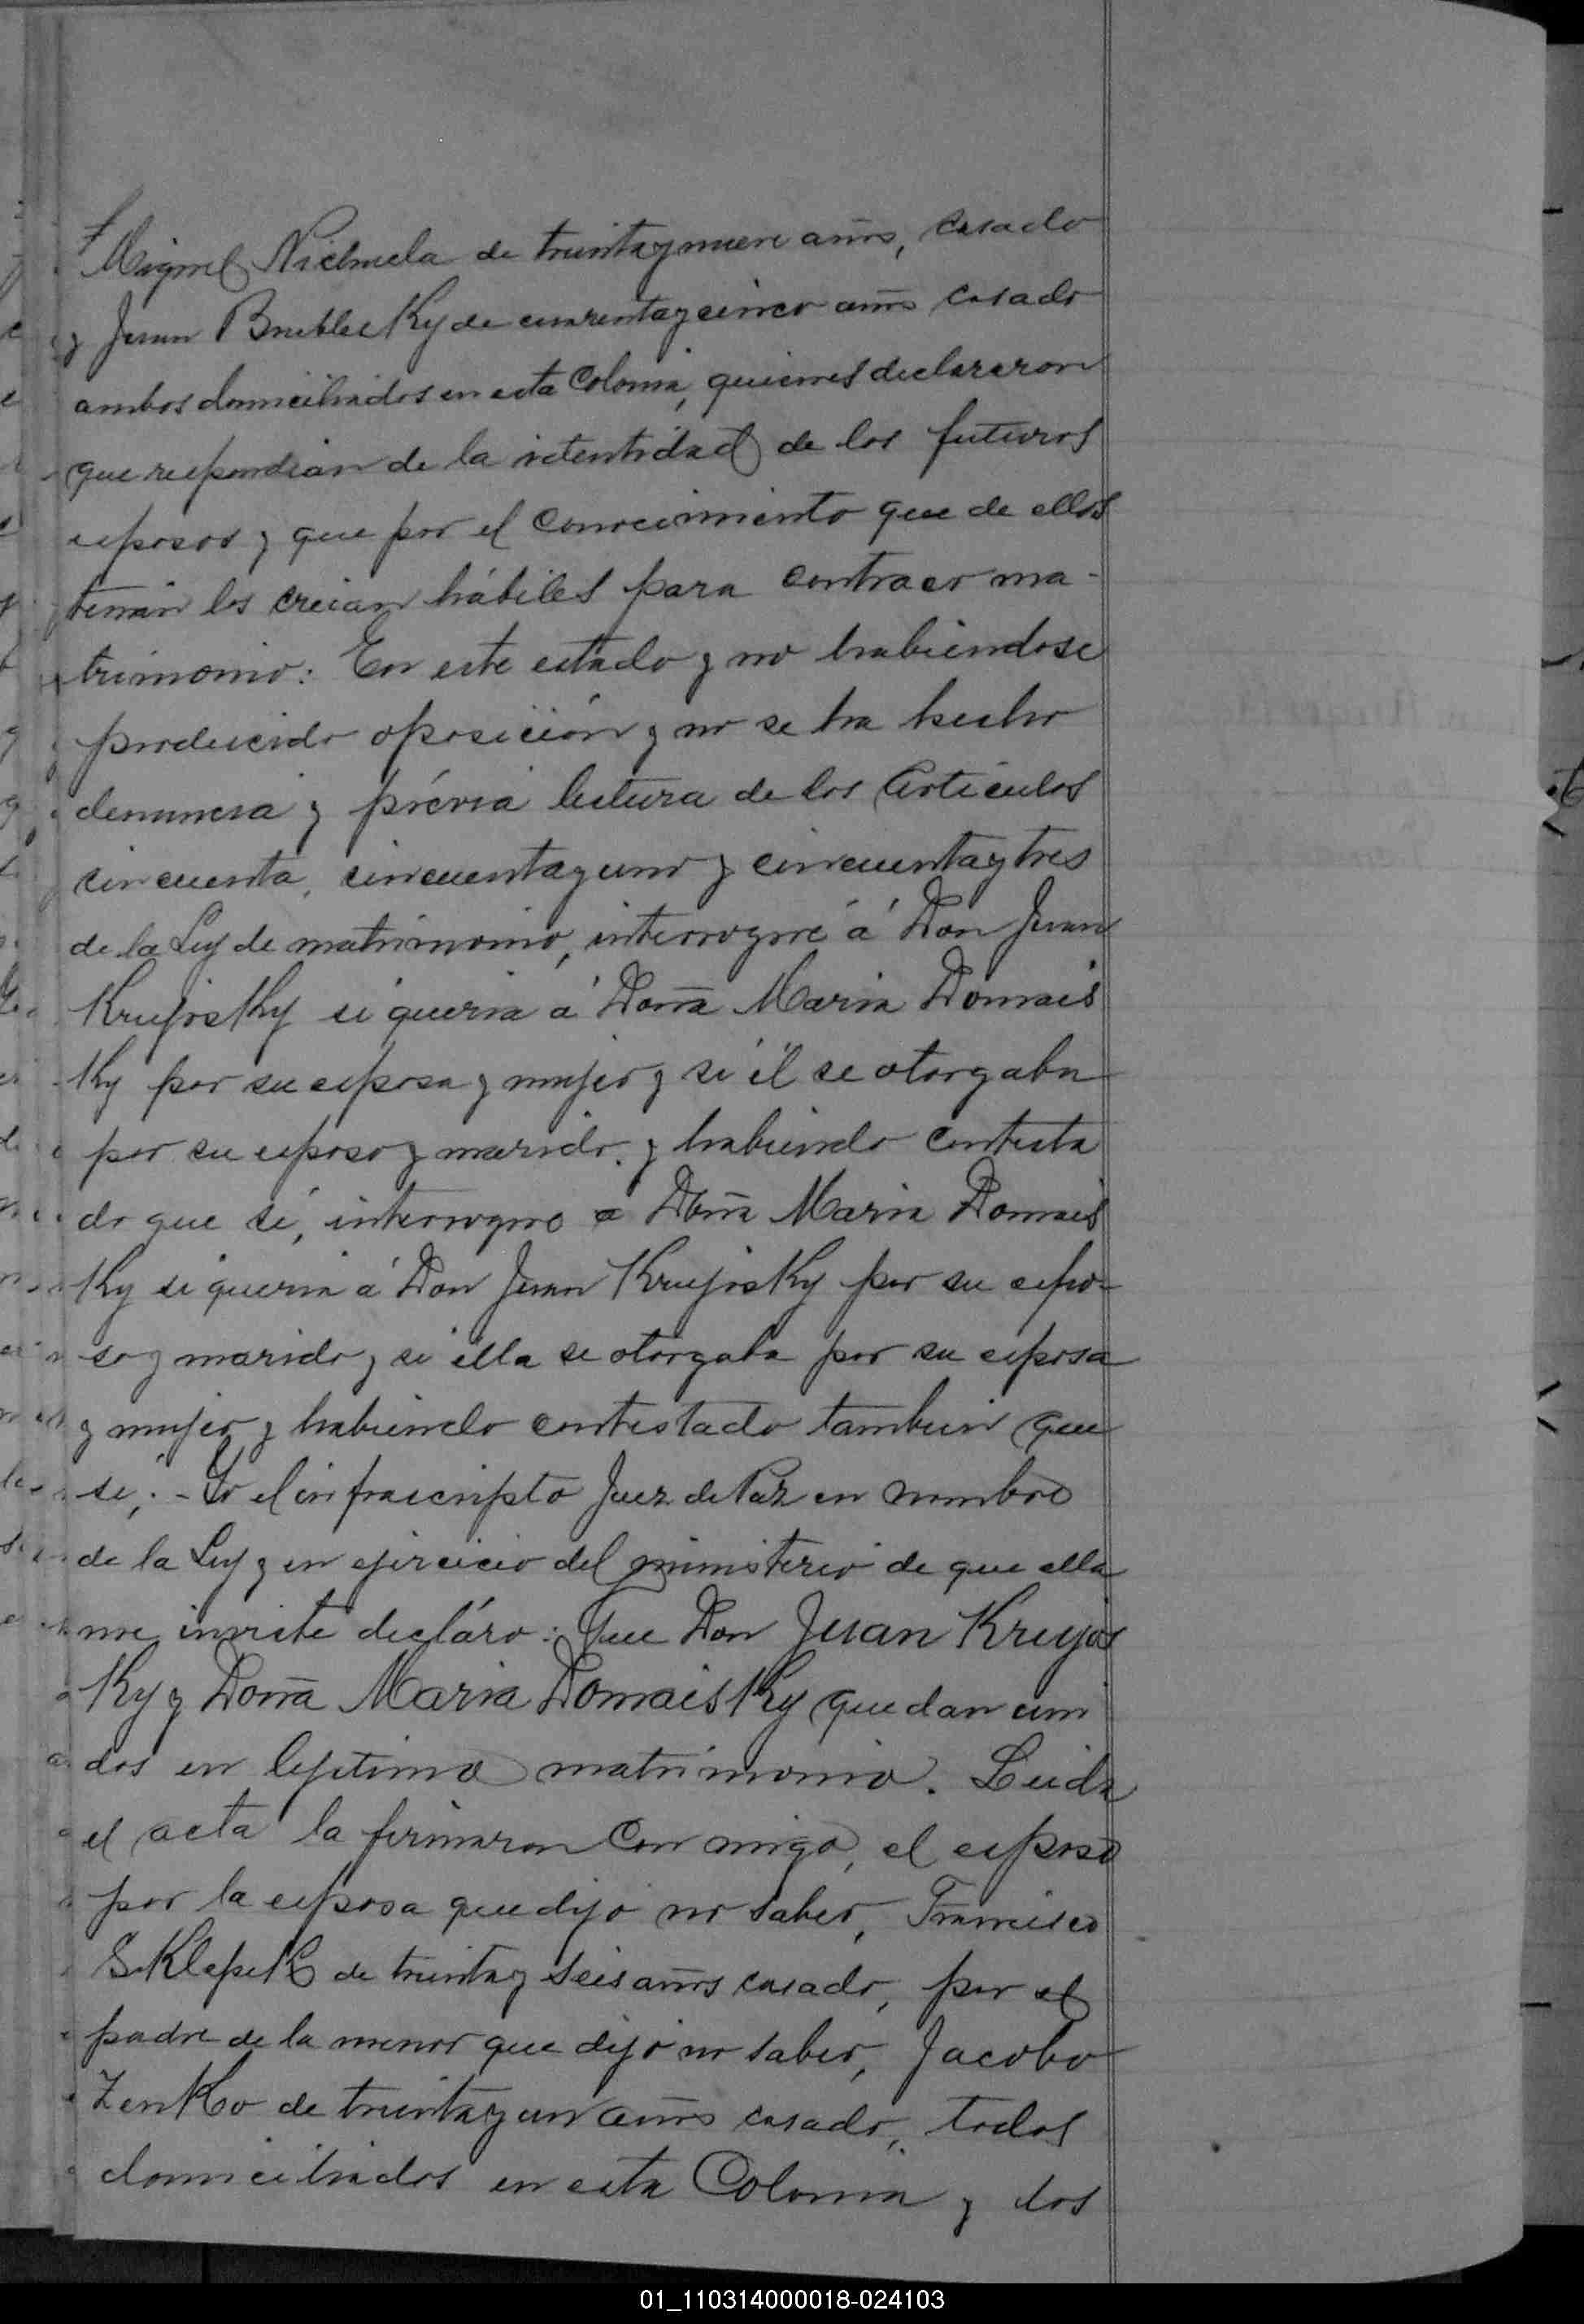 Miguel Nichuela de treinta y nueve años, casado
y Juan BrubleeKy de cuarenta y cinco años casado
ambos domiciliados en esta Colonia, quienes declararon
que respondian de la identidad de los futuros
esposos y que por el conocimiento que de ellos
tenian los creian hábiles para contraer ma-
trimonio: En este estado y no habiendose
producido oposicion y no se ha hecho
denuncia y prévia lectura de los Articulos
cincuenta, cincuenta y uno y cincuenta y tres
de la Ley de matrimonio, interrogué á Don Juan
KrujosKy si queria á Doña Maria Domais
Ky por su esposa y mujer y si él se otorgaba
por su esposo y marido, y habiendo contesta
do que sí, interrogué a Doña Maria Domais
Ky si queria á Don Juan KrujosKy por su espo-
so y marido y si élla se otorgaba por su esposa
y mujer y habiendo contestado tambien que
si; - Yo el infrascripto Juez de Paz en nombre
de la Ley y en ejercicio del ministerio de que ella
me inviste decláro: Que Don Juan Krujos
Ky y Doña Maria DomaisKy quedan uni
dos en lejitimo matrimonio. Leida
el acta la firmaron conmigo, el esposo
por la esposa que dijo no saber, Francisco
SKlepeK de treinta y seis años casado, por el
padre de la menor que dijo no saber, Jacobo
ZenKo de treinta y un años casado, todos
domiciliados en esta Colonia y los
01_110314000018-024103